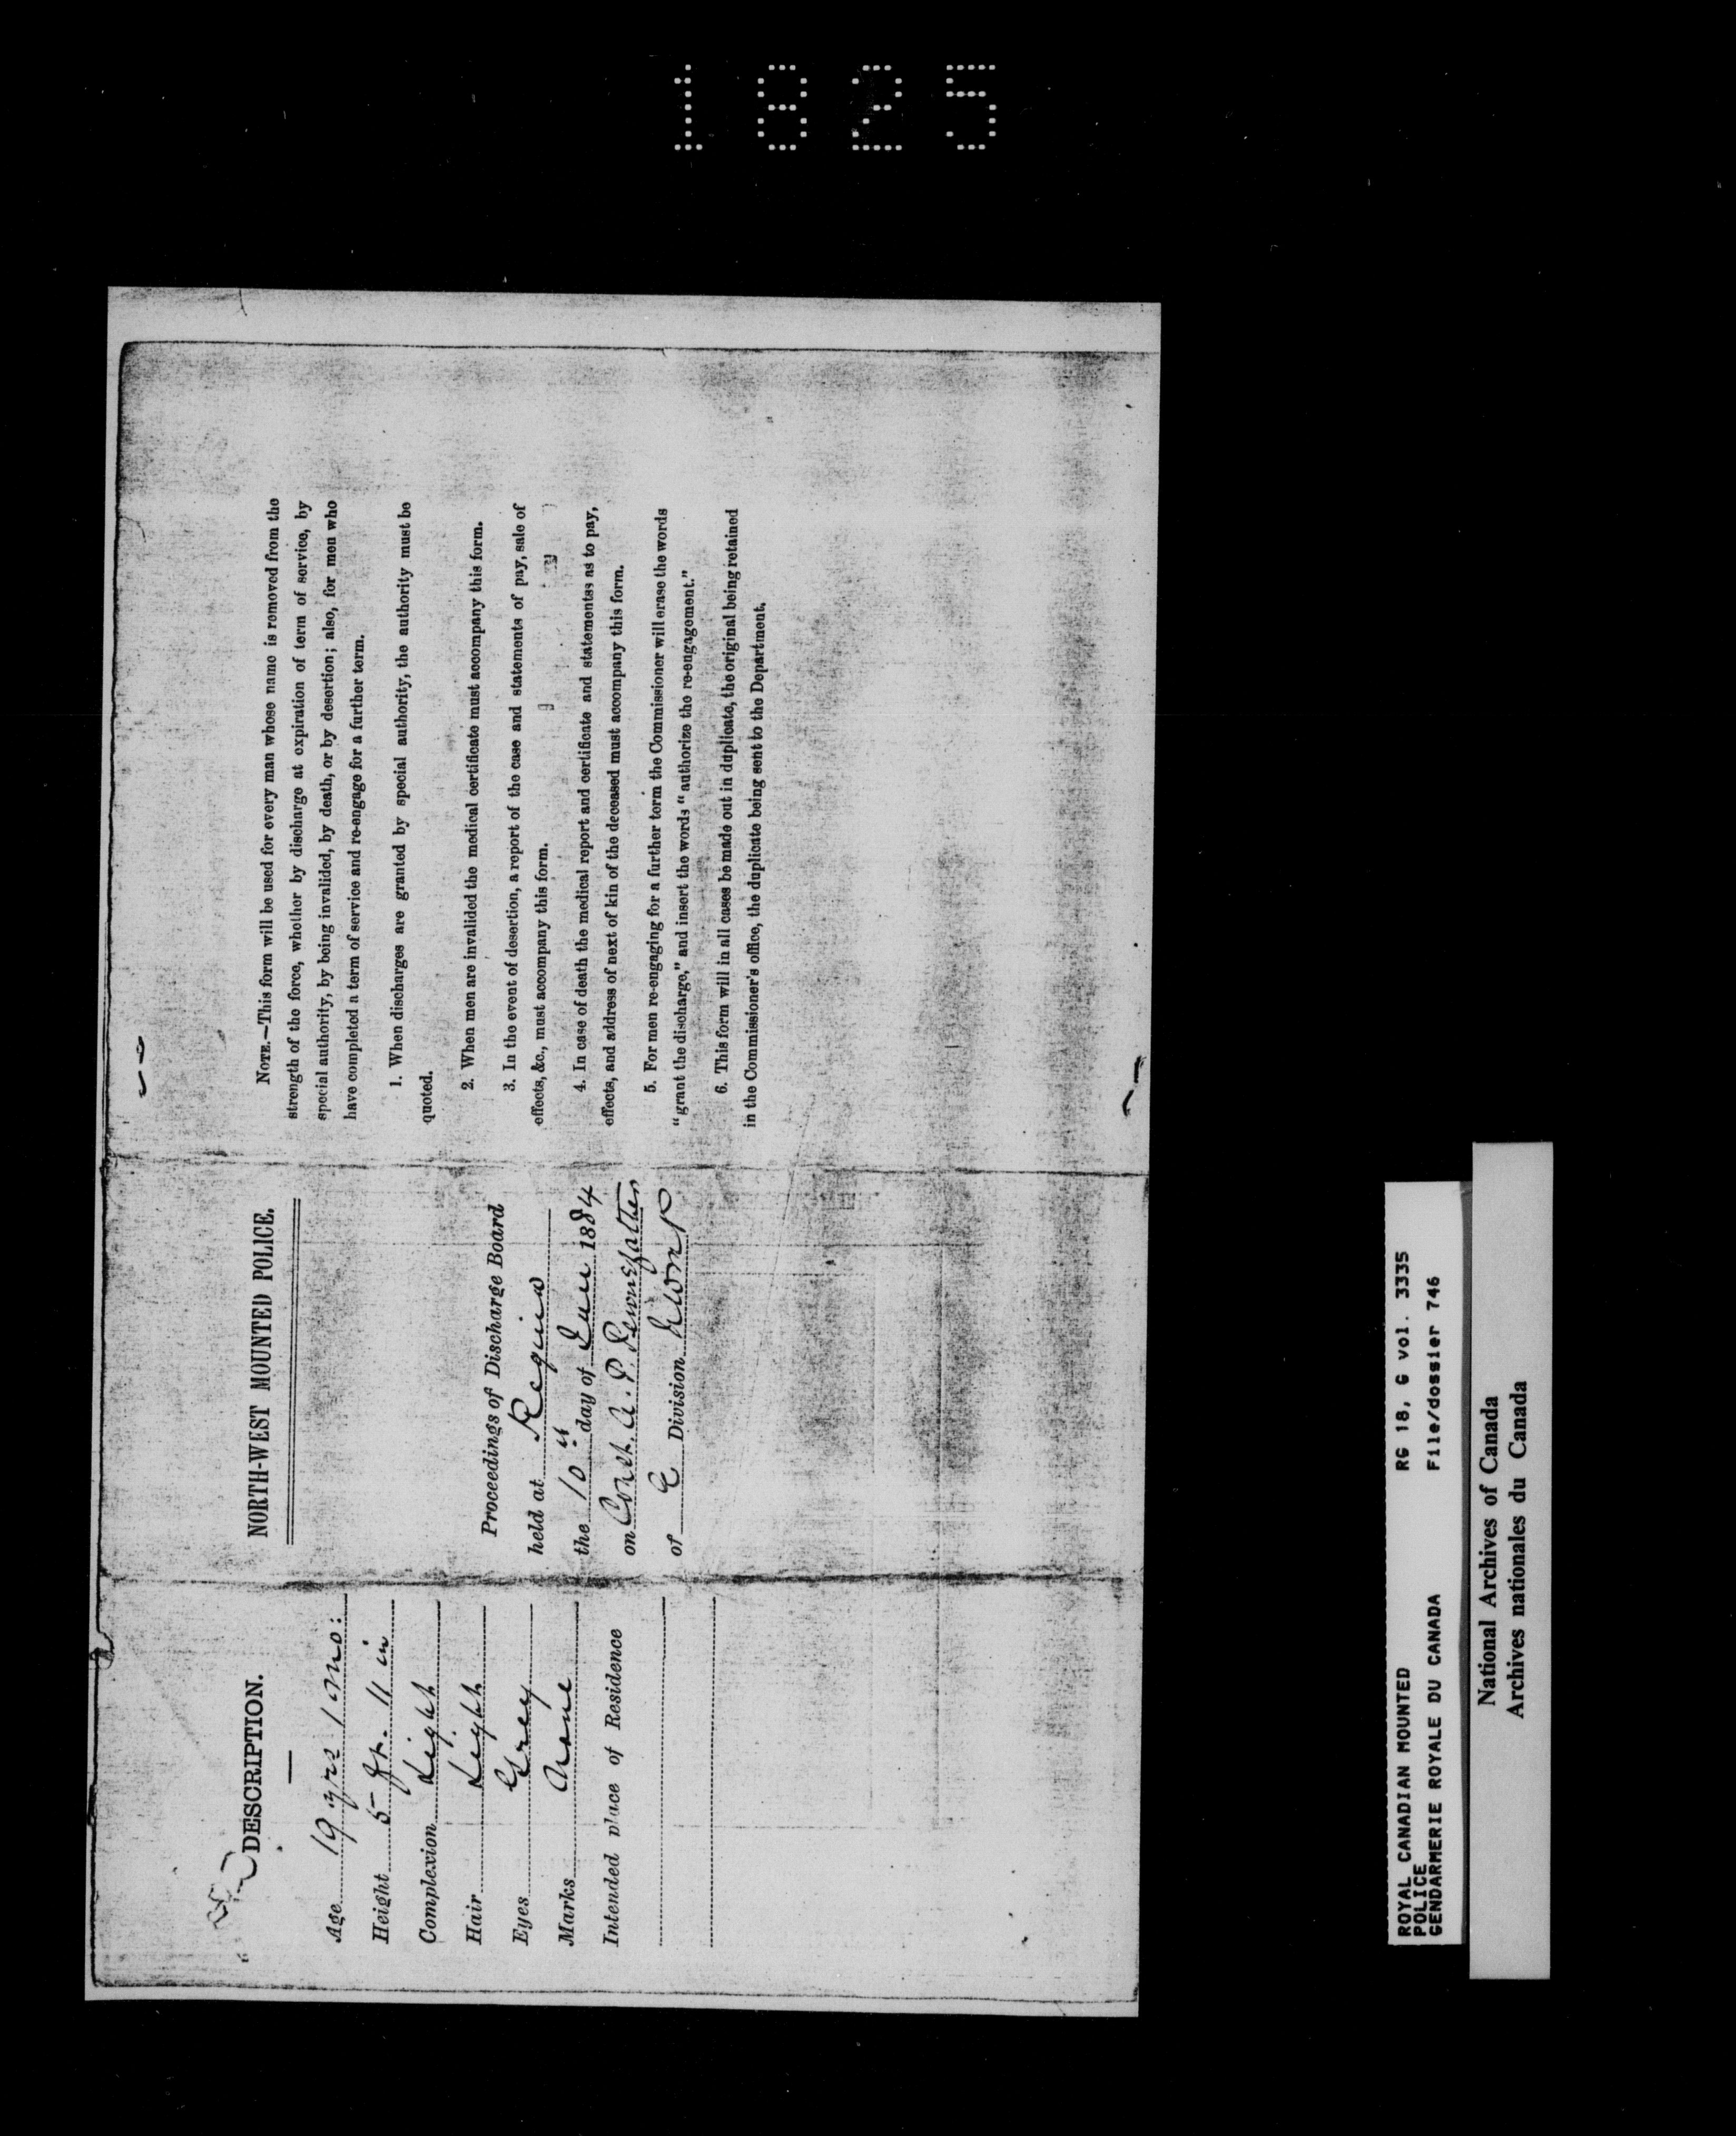 1825
DESCRIPTION.
Age 19 yrs 1 mo:
Height 5 ft. 11 in
Complexion Light
Hair Light
Eyes Grey
Marks None
Intended place of Residence
NORTH-WEST MOUNTED POLICE.
Proceedings of Discharge Board
held at Regina
the 10th day of Jan 1884
on Const. A. P. Pennefather
of E Division NWMP
NOTE.—This form will be used for every man whose name is removed from the
strength of the force, whether by discharge at expiration of term of service, by
special authority, by being invalided, by death, or by desertion; also, for men who
have completed a term of service and re-engage for a further term.
1. When discharges are granted by special authority, the authority must be
quoted.
2. When men are invalided the medical certificate must accompany this form.
3. In the event of desertion, a report of the case and statements of pay, sale of
effects, &c., must accompany this form.
4. In case of death the medical report and certificate and statementss as to pay,
effects, and address of next of kin of the deceased must accompany this form.
5. For men re-engaging for a further term the Commissioner will erase the words
“grant the discharge,” and insert the words “authorize the re-engagement.”
6. This form will in all cases be made out in duplicate, the original being retained
in the Commissioner's office, the duplicate being sent to the Department.
ROYAL CANADIAN MOUNTED RG 18, G vol. 3335
POLICE
GENDARMERIE ROYALE DU CANADA File/dossier 746
National Archives of Canada
Archives nationales du Canada